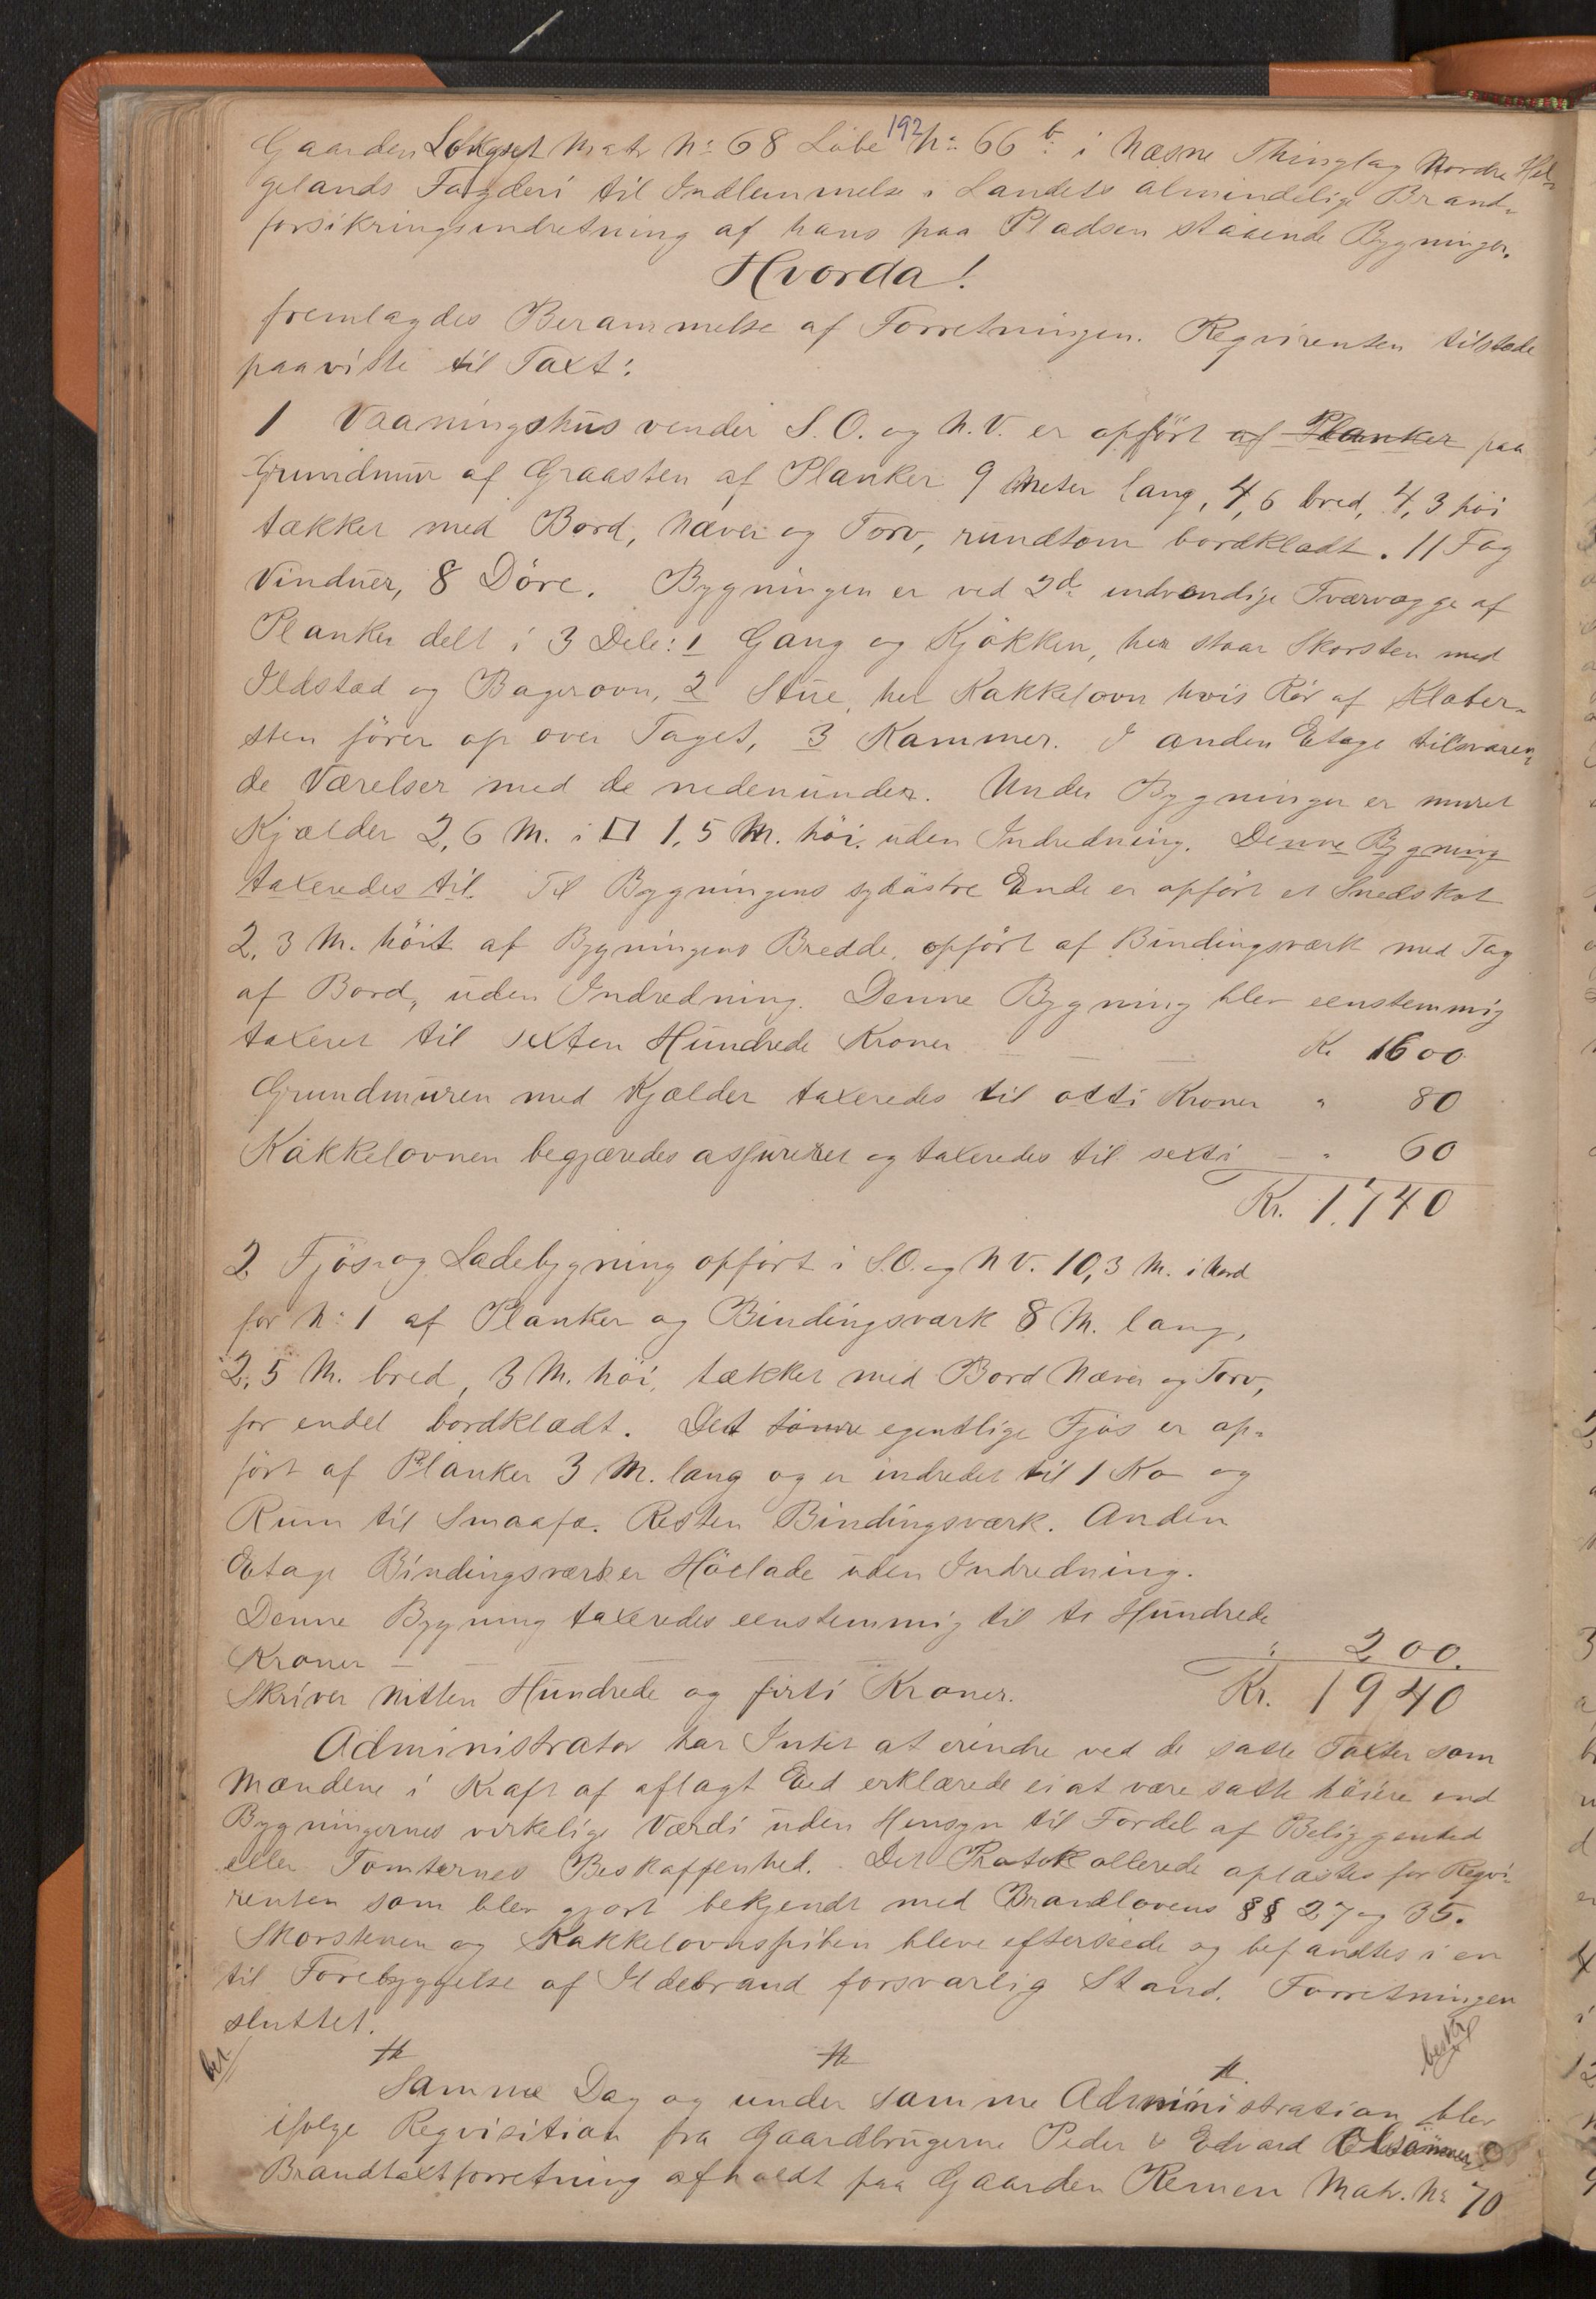 192
Gaarden Løkgset Matr N: 68 Løbe N: 66 b. i Næsne Thinglag Nordre Hel-
gelands Fogderi til Indlemmelse i Landets almindelige Brand-
forsikringsindretning af hans paa Pladsen staaende Bygninger.
Hvorda!
fremlagdes Berammelse af Forretningen. Reqvirenten tilstede
paaviste til Taxt:
1 Vaaningshus vender S.O. og N.V. er opført af Planker paa
Grundmur af Graasten af Planker 9 Meter lang, 4,6 bred, 4,3 høi
tækket med Bord, Næver og Torv, rundtom bordklædt. 11 Fag
Vinduer, 8 Døre. Bygningen er ved 2de indvendige Tværvægge af
Planker delt i 3 Dele: 1 Gang og Kjøkken, her staar Skorsten med
Ildstad og Bagerovn, 2 Stue, her Kakkelovn hvis Rør af Kleber-
sten fører op over Taget, 3 Kammer. I anden Etage tilsvaren-
de Værelser med de nedenunder. Under Bygningen er muret
Kjælder 2,6 M. i □ 1,5 M. høi. uden Indredning. Denne Bygning
taxeredes til. Til Bygningens sydøstre Ende er opført et Snedskot
2,3 M. høit af Bygningens Bredde, opført af Bindingsværk med Tag
af Bord, uden Indredning. Denne Bygning blev eenstemmig
taxeret til sexten Hundrede Kroner — — — Kr 1600
Grundmuren med Kjælder taxeredes til otti Kroner " 80
Kakkelovnen begjæredes assureret og taxeredes til sexti — " 60
Kr. 1740
2 Fjøs og Ladebygning opført i S.O. og N V. 10,3 M. i Nord
for N: 1 af Planker og Bindingsværk 8 M. lang,
2,5 M. bred, 3 M. høi, tækket med Bord Næver og Torv,
for endel bordklædt. Det egentlige Fjøs er op-
ført af Planker 3 M. lang og er indredet til 1 Ko og
Rum til Smaafæ. Resten Bindingsværk. Anden
Etage Bindingsværk er Høelade uden Indredning.
Denne Bygning taxeredes eenstemmig til to Hundrede
Kroner — — — " 200.
Skriver nitten Hundrede og firti Kroner. Kr. 1940
Administrator har Intet at erindre ved de satte Taxter som
Mændene i Kraft af aflagt Eed erklærede ei at være satte høiere end
Bygningernes virkelige Værdi uden Hensyn til Fordel af Beliggenhed
eller Tomternes Beskaffenhed. Det Protokollerede oplæstes for Reqvi-
renten som blev gjort bekjendt med Brandlovens §§ 27 og 35.
Skorstenen og Kakkelovnspiben bleve efterseede og befandtes i en
til Forebyggelse af Ildebrand forsvarlig Stand. Forretningen
sluttet.
Samme Dag og under samme Administration blev
ifølge Reqvisition fra Gaardbrugerne Peder & Edvard Olsønner
Brandtaxtforretning afholdt paa Gaarden Remen Matr. N: 70